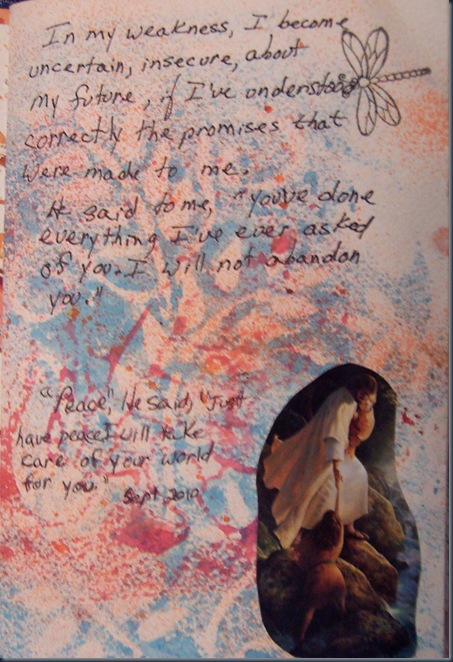 In my weakness, I become
uncertain, insecure, about
my future, if I've understood
correctly the promises that
were made to me.
He said to me, "you've done
everything I've ever asked
of you. I will not abandon
you."
"Peace", He said, "Just
have peace I will take
care of your world
for you." Sept. 2010